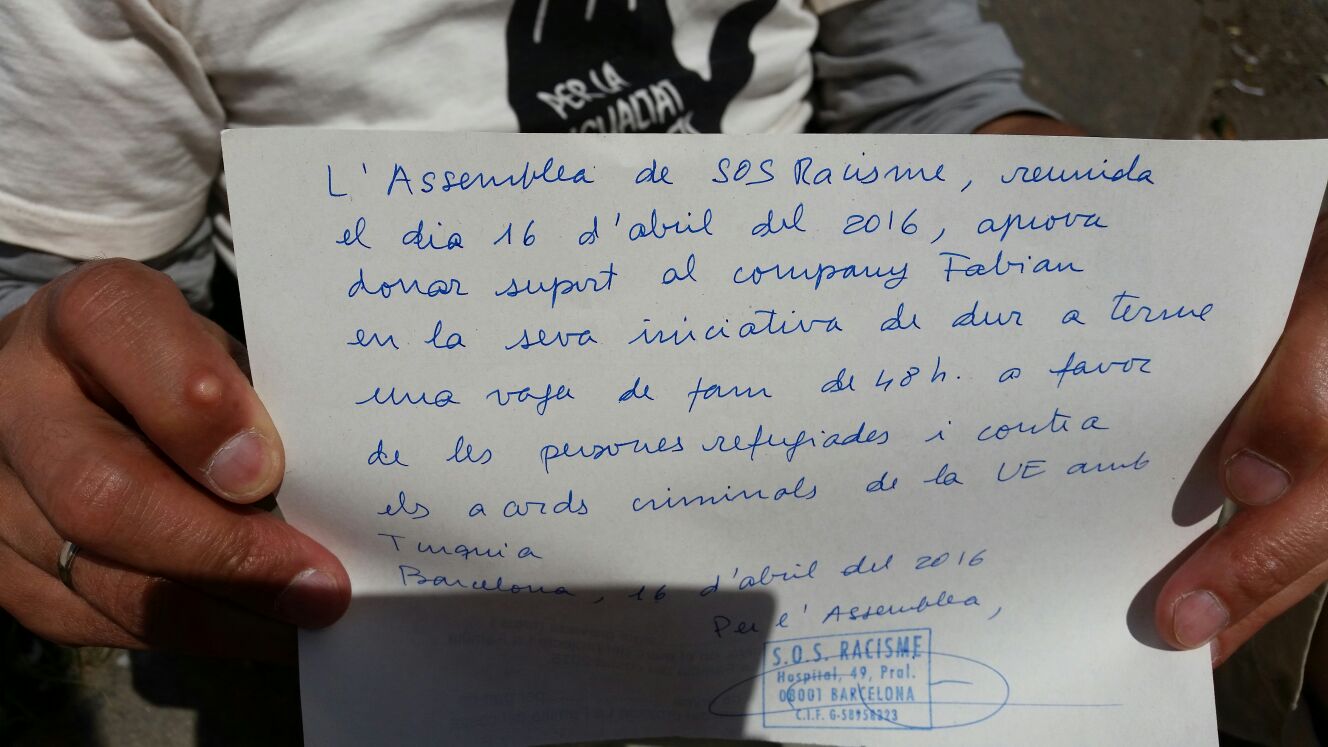 PER LA
IGUALTAT
L'Assemblea de SOS Racisme, reunida
el dia 16 d'abril del 2016, aprova
donar suport al company Fabian
en la seva iniciativa de dur a terme
una vaga de fam de 48 h. a favor
de les persones refugiades i contra
els acords criminals de la UE amb
Turquia
Barcelona, 16 d'abril del 2016
Per l'Assemblea,
S.O.S. RACISME
Hospital, 49, Pral.
08001 BARCELONA
C.I.F. G-58958323